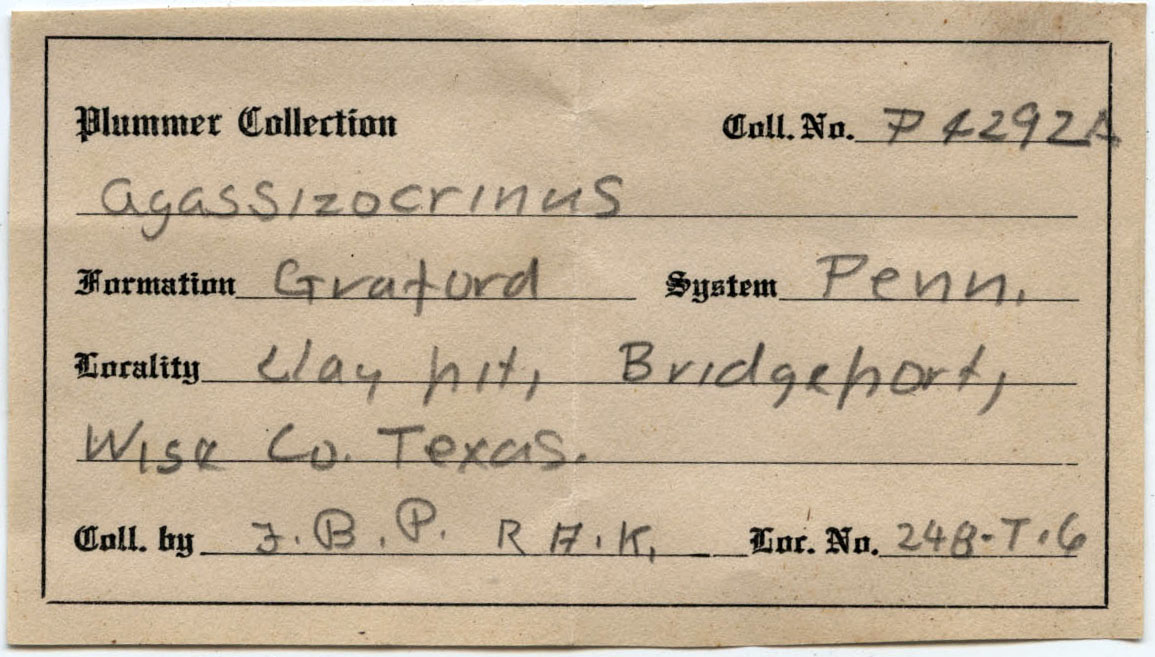 Plummer Collection Coll. No. P 4292A
Agassizocrinus
Formation Graford System Penn.
Locality Clay pit, Bridgeport,
Wise Co. Texas.
Coll. by F. B. P. R A. K. Loc. No. 248-T-6